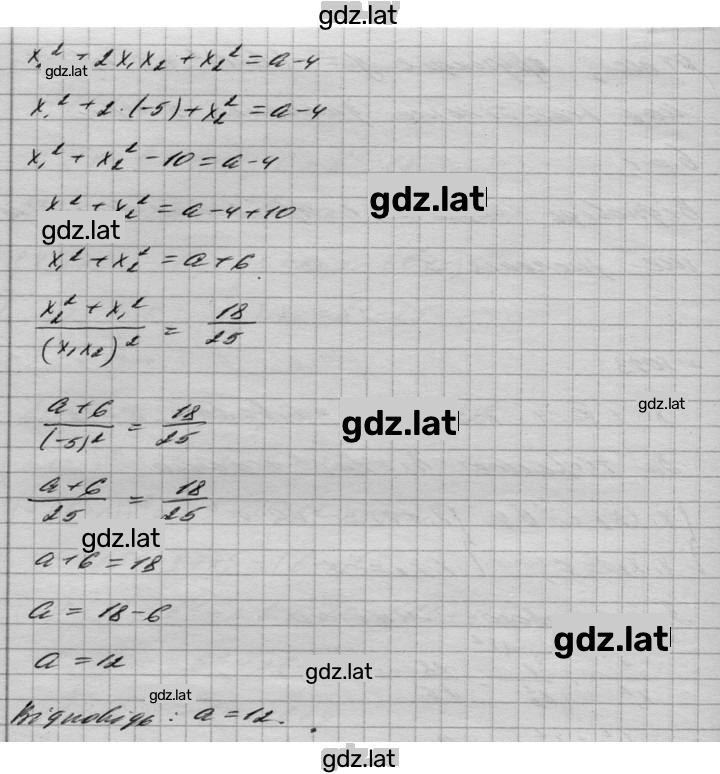 gdz.lat
x₁² + 2x₁x₂ + x₂² = a - 4
gdz.lat
x₁² + 2·(-5) + x₂² = a - 4
x₁² + x₂² - 10 = a - 4
gdz.lat
x₁² + x₂² = a - 4 + 10
gdz.lat
x₁² + x₂² = a + 6
(x₂² + x₁²)/(x₁x₂)² = 18/25
gdz.lat
(a + 6)/(-5)² = 18/25
gdz.lat
(a + 6)/25 = 18/25
gdz.lat
a + 6 = 18
a = 18 - 6
gdz.lat
a = 12
gdz.lat
gdz.lat
Відповідь: a = 12.
gdz.lat